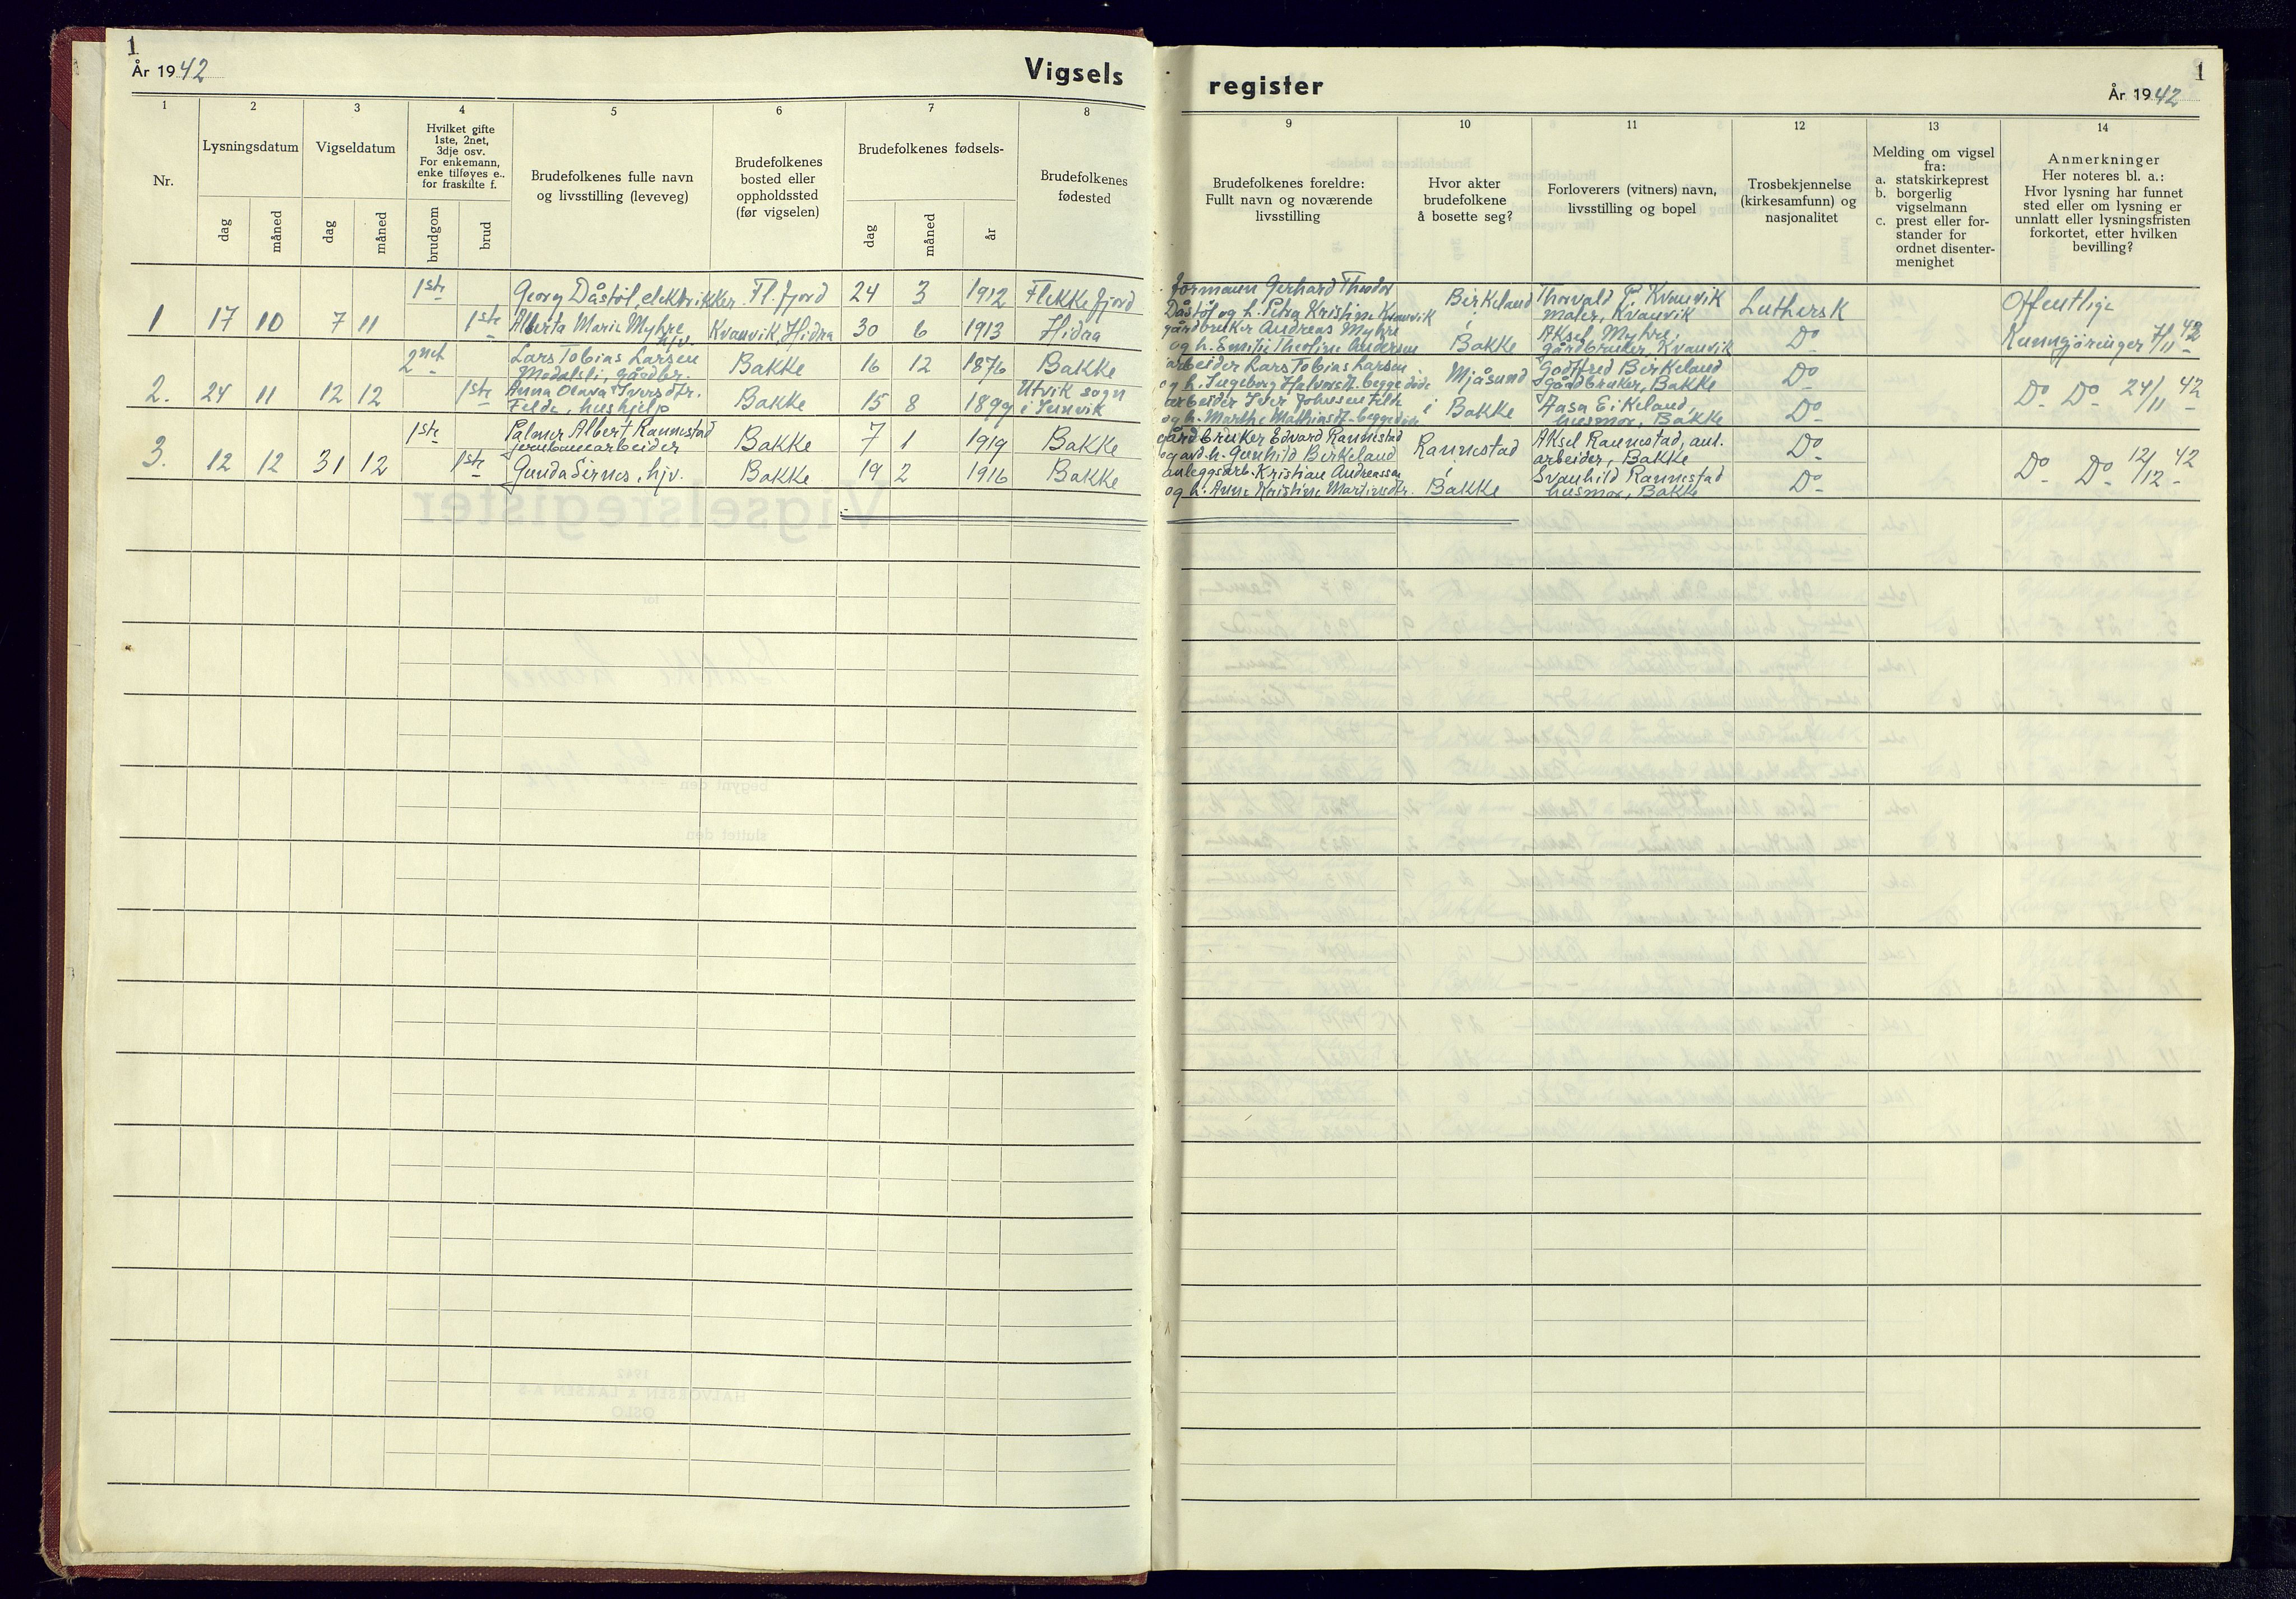 1
År 1942
Vigsels
register
1
År 1942
1
2
3
4
5
6
7
8
9
10
11
12
13
14
Nr.
Lysningsdatum
dag
måned
Vigseldatum
dag
måned
Hvilket gifte
1ste, 2net,
3dje osv.
For enkemann,
enke tilføyes e..
for fraskilte f.
brudgom
brud
Brudefolkenes fulle navn
og livsstilling (leveveg)
Brudefolkenes
bosted eller
oppholdssted
(før vigselen)
Brudefolkenes fødsels-
dag
måned
år
Brudefolkenes
fødested
Brudefolkenes foreldre:
Fullt navn og noværende
livsstilling
Hvor akter
brudefolkene
å bosette seg?
Forloverers (vitners) navn,
livsstilling og bopel
Trosbekjennelse
(kirkesamfunn) og
nasjonalitet
Melding om vigsel
fra:
a. statskirkeprest
b. borgerlig
vigselmann
c. prest eller for-
stander for
ordnet disenter-
menighet
Anmerkninger
Her noteres bl. a.:
Hvor lysning har funnet
sted eller om lysning er
unnlatt eller lysningsfristen
forkortet, etter hvilken
bevilling?
1 17 10 7 11
1ste Georg Dåstøl, elektrikker Fl. fjord 24 3 1912 Flekkefjord
1ste Alberta Marie Myhre hjv. Kvanvik, Hidra 30 6 1913 Hidra
formann Gerhard Theodor
Dåstøl og h. Petra Kristine Kvanvik
gårdbruker Andreas Myhre
og h. Emilie Theoline Andersen
Birkeland
i
Bakke
Thorvald P. Kvanvik
maler, Kvanvik
Aksel Myhre,
gårdbruker, Kvanvik
Luthersk
Do
Offentlige
Kunngjøringer 7/11 42
2. 24 11 12 12
2net Lars Tobias Larsen
Mødalsli, gårdbr. Bakke 16 12 1876 Bakke
1ste Anna Olava Iversdtr.
Felde, hushjelp Bakke 15 8 1899 Utvik sogn
i Innvik
arbeider Lars Tobias Larsen
og h. Ingeborg Halvorsd. begge døde
arbeider Iver Johnsen Felde
og h. Marthe Mathiasd. begge døde
Mjåsund
i Bakke
Godtfred Birkeland
gårdbruker, Bakke
Aasa Eikeland,
husmor, Bakke
Do
Do
Do Do 24/11 42
3. 12 12 31 12
1ste Palmer Albert Rannestad
jernbanearbeider Bakke 7 1 1919 Bakke
1ste Gunda Sirnes, hjv. Bakke 19 2 1916 Bakke
gårdbruker Edvard Rannestad
og avd. h. Gunhild Birkeland
anleggsarb. Kristian Andreassen
og h. Anne Kristine Martinsdtr.
Rannestad
i
Bakke
Aksel Rannestad, anl.
arbeider, Bakke
Svanhild Rannestad
husmor, Bakke
Do
Do
Do Do 12/12 42